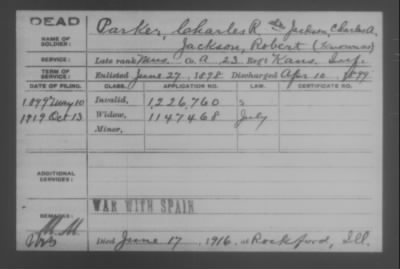 DEAD
NAME OF SOLDIER:
Parker, Charles R. alias Jackson, Charles A.
Jackson, Robert
SERVICE: Late rank Mus. Co. A 23 Reg't Kans. Inf.
TERM OF SERVICE: Enlisted June 27, 1898 Discharged Apr 10, 1899
DATE OF FILING. CLASS. APPLICATION NO. LAW. CERTIFICATE NO.
1899 May 10 Invalid, 1,226,760
1919 Oct 13 Widow, 1147468 July
Minor,
ADDITIONAL SERVICES:
WAR WITH SPAIN
REMARKS:
Died June 17, 1916, at Rockford, Ill.